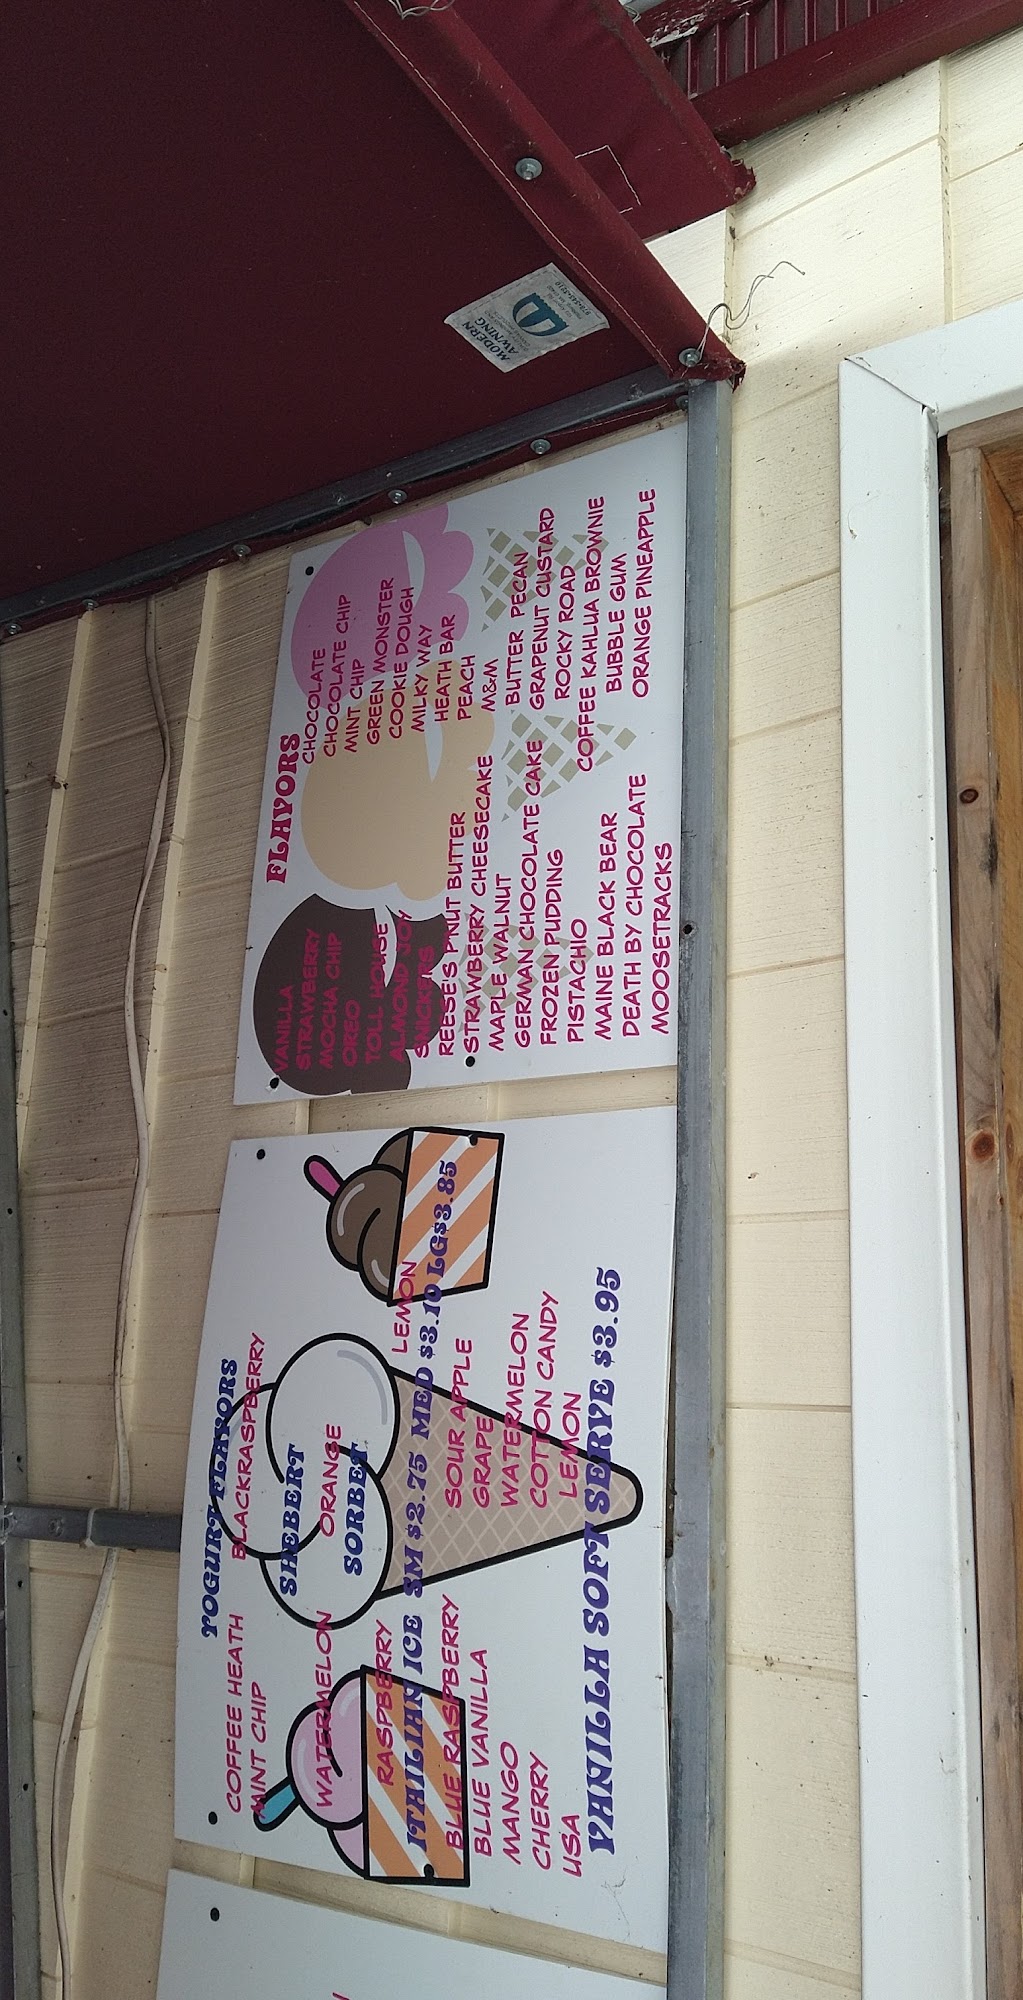 MODERN
AWNING
978-281-3210
FLAVORS
VANILLA
STRAWBERRY
MOCHA CHIP
OREO
TOLL HOUSE
ALMOND JOY
SNICKERS
REESE'S PNUT BUTTER
STRAWBERRY CHEESECAKE
MAPLE WALNUT
GERMAN CHOCOLATE CAKE
FROZEN PUDDING
PISTACHIO
MAINE BLACK BEAR
DEATH BY CHOCOLATE
MOOSETRACKS
CHOCOLATE
CHOCOLATE CHIP
MINT CHIP
GREEN MONSTER
COOKIE DOUGH
MILKY WAY
HEATH BAR
PEACH
M&M
BUTTER PECAN
GRAPENUT CUSTARD
ROCKY ROAD
COFFEE KAHLUA BROWNIE
BUBBLE GUM
ORANGE PINEAPPLE
YOGURT FLAVORS
COFFEE HEATH BLACKRASPBERRY
MINT CHIP
SHEBERT
WATERMELON ORANGE
SORBET
RASPBERRY LEMON
ITAILIAN ICE SM $2.75 MED $3.10 LG$3.85
BLUE RASPBERRY SOUR APPLE
BLUE VANILLA GRAPE
MANGO WATERMELON
CHERRY COTTON CANDY
USA LEMON
VANILLA SOFT SERVE $3.95